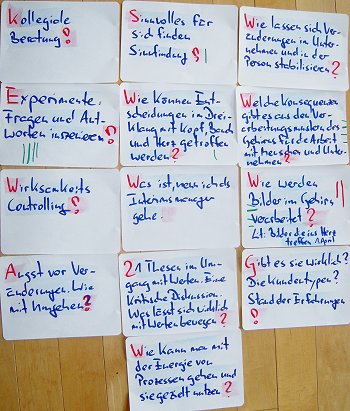 Kollegiale
Beratung?
Sinnvolles für
sich finden
Sinnfindung?
Wie lassen sich Ver-
änderungen in Unter-
nehmen und in der
Person stabilisieren?
Experimente:
Fragen und Ant-
worten inszenieren?
Wie können Ent-
scheidungen im Drei-
klang mit Kopf, Bauch
und Herz getroffen
werden?
Welche Konsequenzen
gibt es aus den Ver-
arbeitungsmustern des
Gehirns für die Arbeit
mit Menschen und Unter-
nehmen?
Wirksamkeits
Controlling?
Was ist, wenn ich als
Interimsmanager
gehe.
Wie werden
Bilder im Gehirn
verarbeitet?
Lt: Bilder die ins Herz
treffen 1. April
Angst vor Ver-
änderungen. Wie
mit Umgehen?
21 Thesen im Um-
gang mit Werten. Eine
kritische Discussion.
Was lässt sich wirklich
mit Werten bewegen?
Gibt es sie wirklich?
Die Kundentypen?
Stand der Erfahrungen
?
Wie kann man mit
der Energie von
Prozessen gehen und
sie gezielt nutzen?